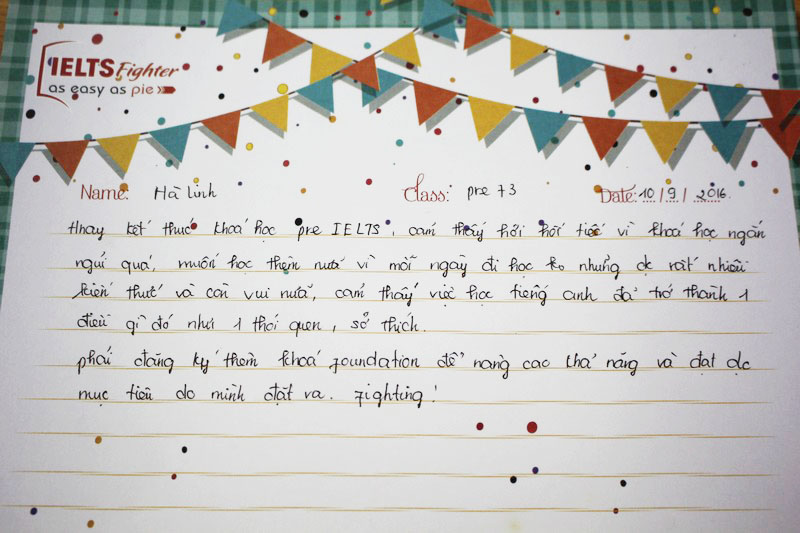 IELTS Fighter
as easy as pie
Name: Hà Linh Class: pre 73 Date: 10/9/2016.
Hnay kết thúc khoá học pre IELTS, cảm thấy hơi hơi tiếc vì khoá học ngắn
ngủi quá, muốn học thêm nữa vì mỗi ngày đi học ko những đc rất nhiều
kiến thức và còn vui nữa, cảm thấy việc học tiếng anh đã trở thành 1
điều gì đó như 1 thói quen, sở thích.
phải đăng ký thêm khoá foundation để nâng cao khả năng và đạt đc
mục tiêu do mình đặt ra. Fighting!